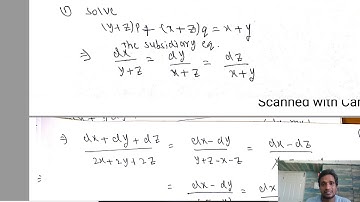 1) Solve
(y+z)p + (x+z)q = x+y
The subsidiary eq.
⇒ dx/y+z = dy/x+z = dz/x+y
Scanned with Ca
⇒ dx+dy+dz/2x+2y+2z = dx-dy/y+z-x-z = dx-dz
= dx-dy